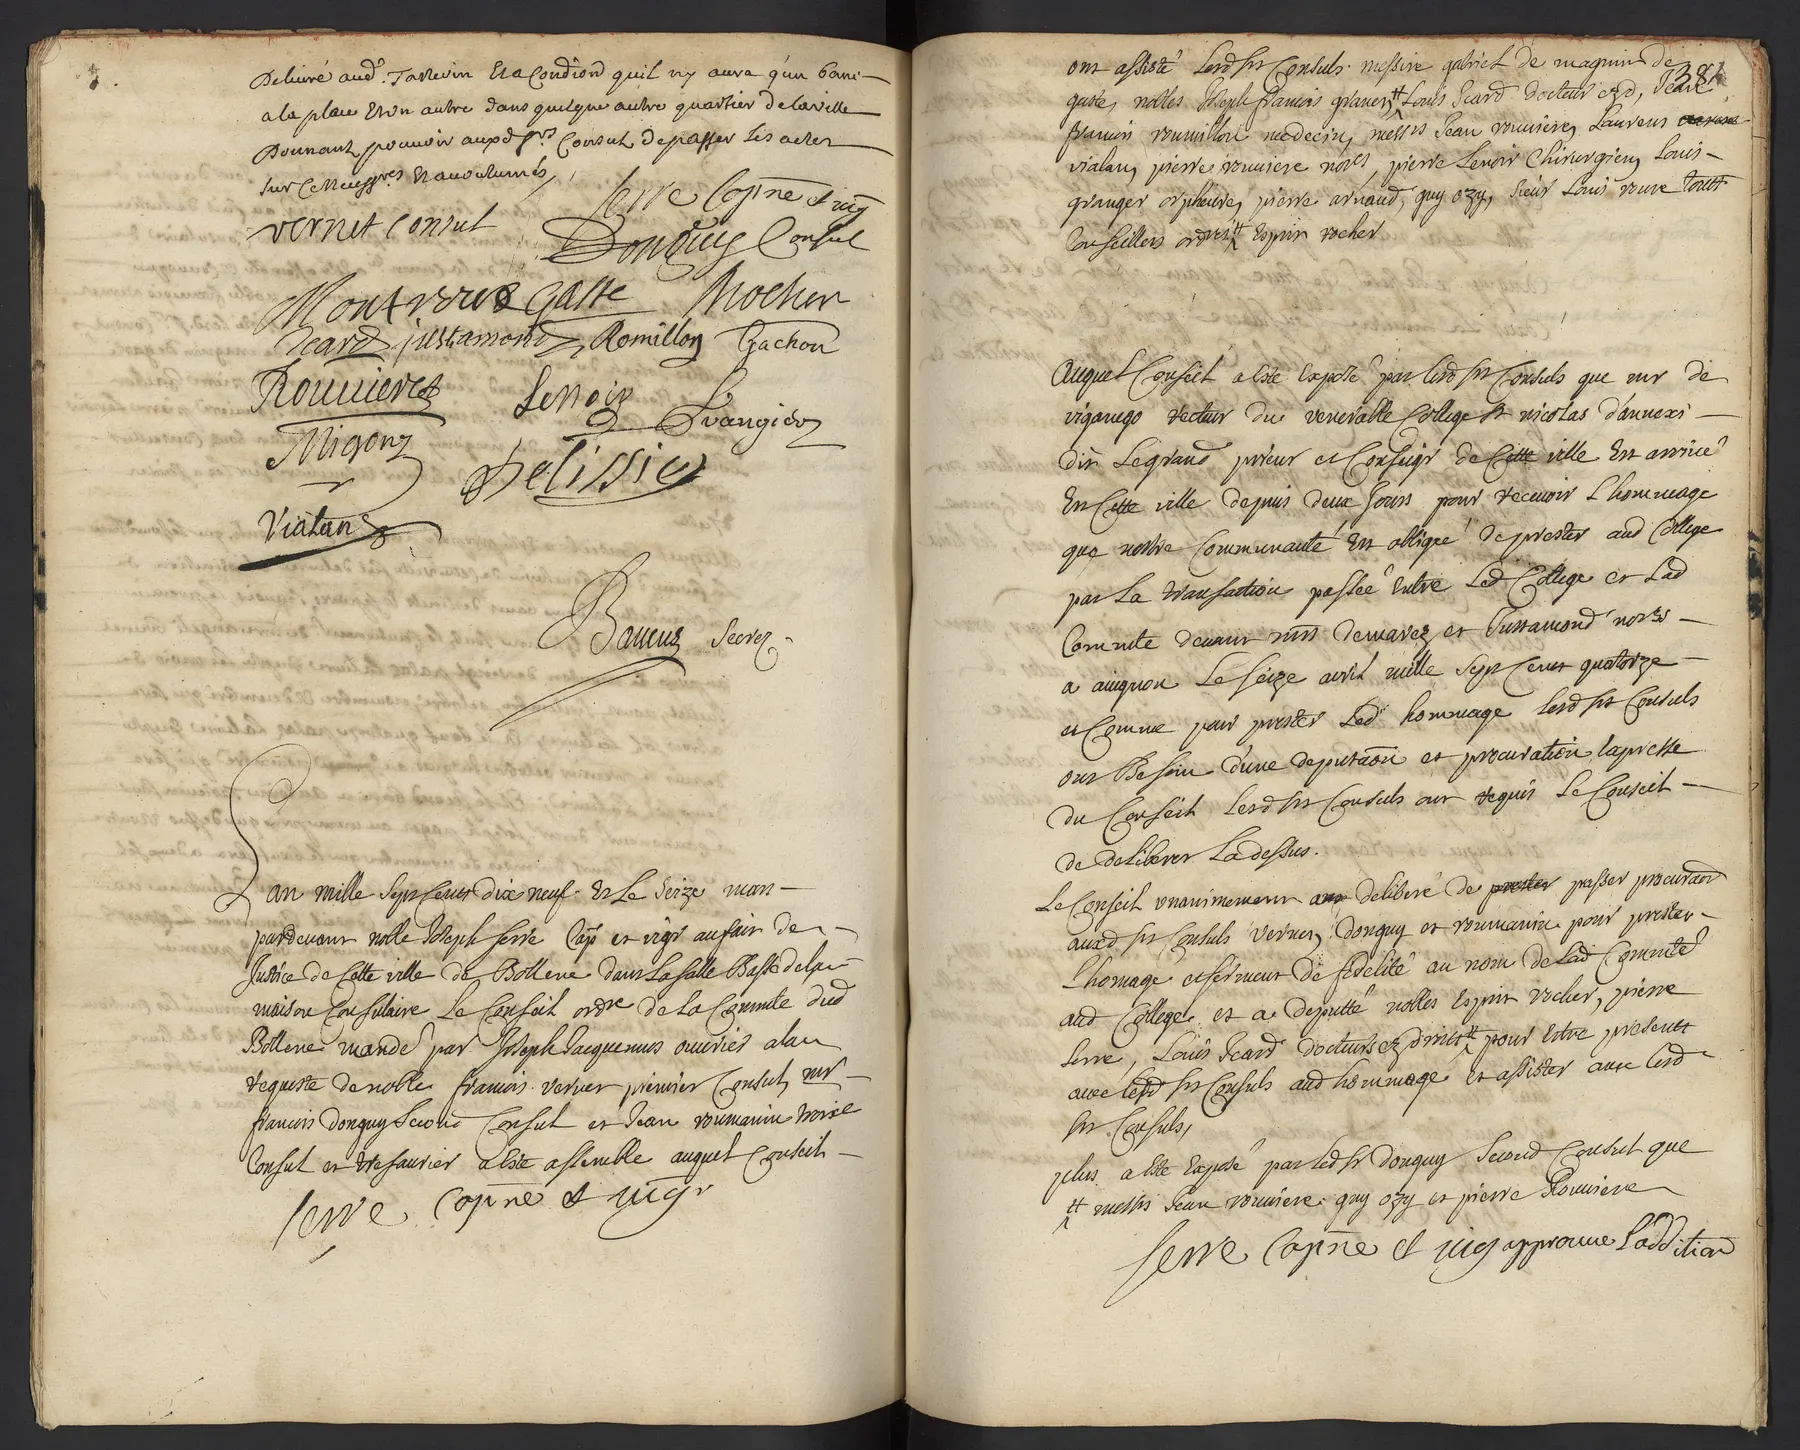 Delivré aud. Tarrevin Et a Condiõn quil ny aura q'un banc
a la place Et un autre dans quelque autre quartier de la ville
Donnant pouvoir auxd srs. Consul de passer les actes
sur ce necessres. Et accoutumés
vernet Consul
serre Capne et vigr
Donguy Consul
Montroux Gaste
Rocher
Icard
justamond
Romillon
Gachon
Rouvieret
Lenoir
Grangier
Migon
Pelissier
Vialans
Baucus Secrer.
Lan mille Sept Cents dix neuf Et Le Seize mars
pardevant noble Joseph serre Cape et vigr au fair de
Justice de Cette ville de Bollene dans La salle Basse de la
maison Consulaire Le Conseil ordre de La Comnte dud
Bollene mandé par Joseph Jacquemus ouvrier a la
requeste de noble francois vernet premier Consul, mr
francois donguy Second Consul et Jean roumanin troise
Consul et tresaurier a Este assemble auquel Conseil
serre Capne et vigr
381
ont assisté Lesd srs Consuls messire gabriel de magnin de
gaste, nobles Joseph francois granet, Louis Icard docteur ezd, Jean
francois roumillon medecin, messrs Jean rouviere, Laurens
vialan, pierre rouviere nores, pierre Lenoir Chirurgien, Louis
granger orpheuvre, pierre arnaud, guy ozy, sieur Louis roure tous
Conseillers ordres Esprit rocher
Auquel Conseil a Este Exposé par lesd srs Consuls que mr de
viganego recteur du venerable College St nicolas d'annexi
dit Le grand prieur et Conseigr de Cette ville Est arrivé
En Cette ville depuis deux Jours pour recevoir L'hommage
que nostre Communauté Est obligée de prester aud College
par La transaction passée Entre Led College et Lad
Comnte devant mrs Demarez et Justamond nores
a avignon Le seize avril mille Sept Cents quatorze
et Comme pour prester Led hommage Lesd srs Consuls
ont Besoin d'une deputaõn et procuration Expresse
du Conseil Lesd srs Consuls ont requis Le Conseil
de deliberer La dessus.
Le Conseil unanimement a delibéré de prester passer procuraõn
auxd srs Consuls vernet, donguy et roumanin pour prester
L'homage et serment de fidelité au nom de Lad Comnté
aud College et a deputté nobles Esprit rocher, pierre
serre, Louis Icard docteurs ez droits pour Estre presents
avec lesd srs Consuls aud hommage et assister avec lesd
srs Consuls,
plus a Este Exposé par led sr donguy Second Consul que
messrs Jean rouviere guy ozy et pierre Rouviere
serre Capne et vigr approuve L'addition